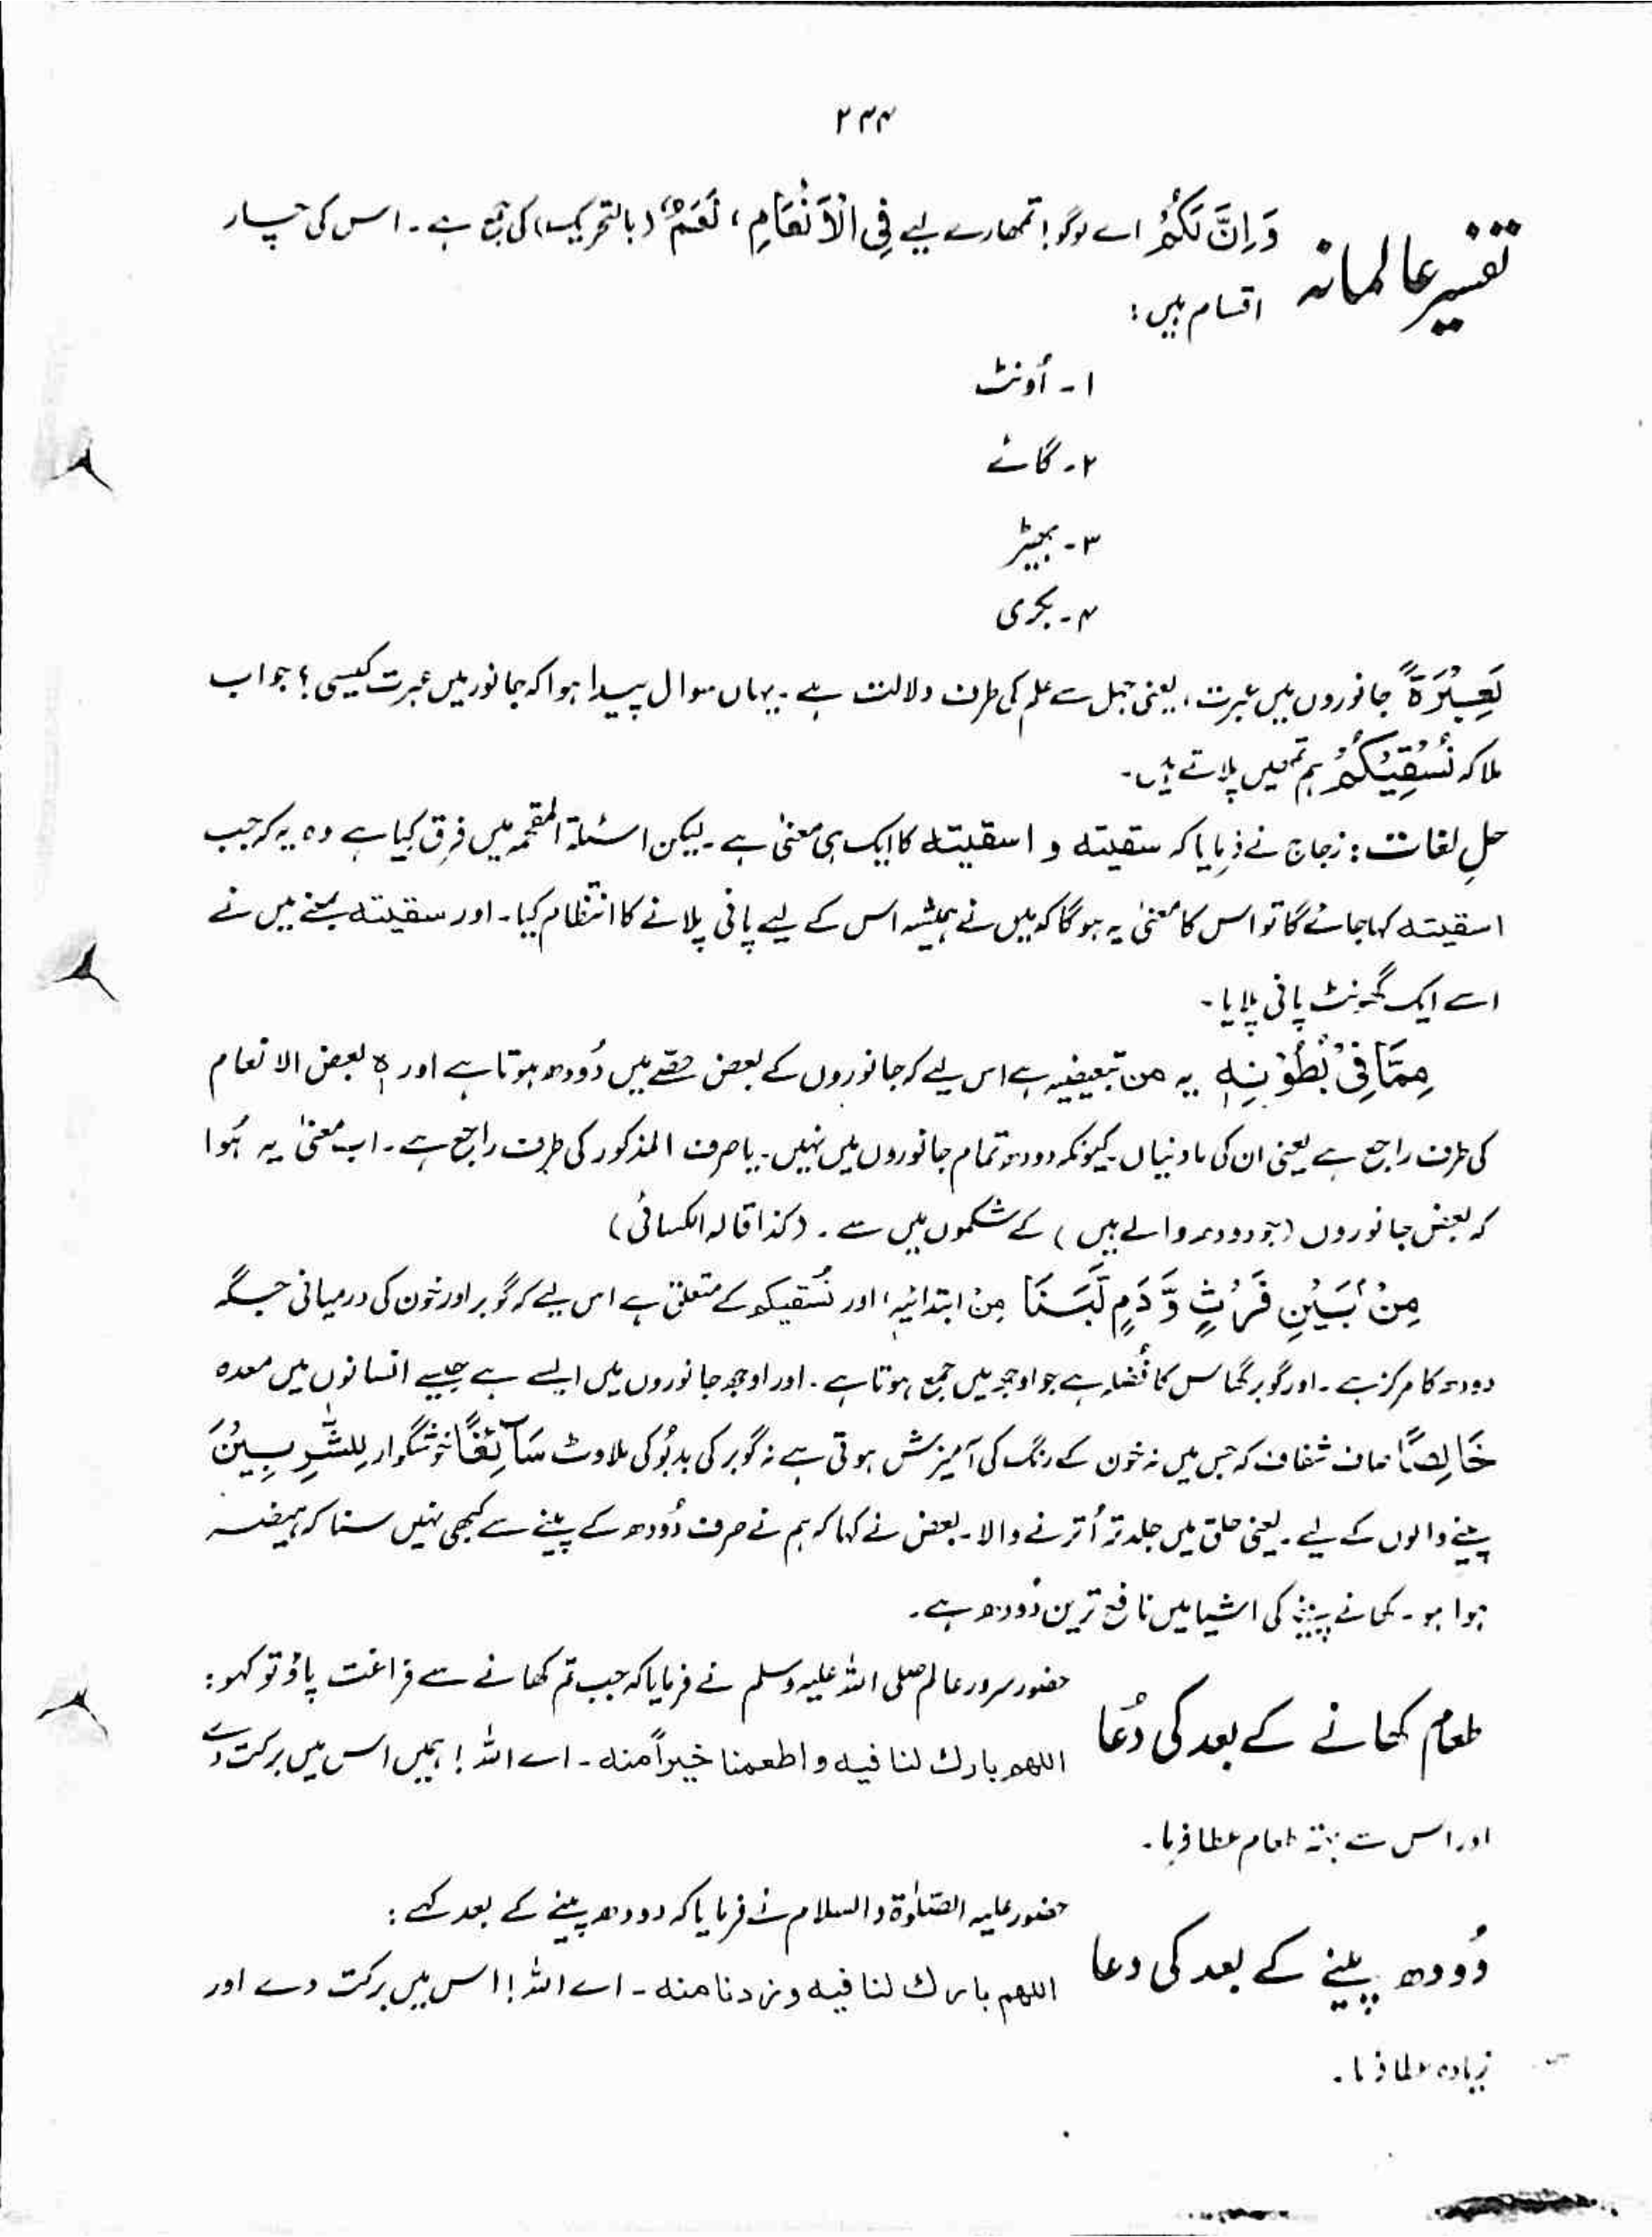 ۲۳۴
تفسیر عالمانہ وَاِنَّ لَكُمْ اے لوگو! تمھارے لیے فِی الْاَنْعَامِ، نَعَمٌ (بالتحریک) کی جمع ہے۔ اس کی چار
اقسام ہیں:
۱۔ اُونٹ
۲۔ گائے
۳۔ بھیڑ
۴۔ بکری
لَعِبْرَةً جانوروں میں عبرت، یعنی جہل سے علم کی طرف دلالت ہے۔ یہاں سوال پیدا ہوا کہ جانور میں عبرت کیسی؟ جواب
ملا کہ نُسْقِيْكُمْ ہم تمھیں پلاتے ہیں۔
حلِ لغات: زجاج نے فرمایا کہ سقیتہ و اسقیتہ کا ایک ہی معنیٰ ہے۔ لیکن اسئلۃ المقحمہ میں فرق کیا ہے وہ یہ کہ جب
اسقیتہ کہا جائے گا تو اس کا معنیٰ یہ ہوگا کہ میں نے ہمیشہ اس کے لیے پانی پلانے کا انتظام کیا۔ اور سقیتہ بمعنے میں نے
اسے ایک گھونٹ پانی پلایا۔
مِمَّا فِیْ بُطُوْنِہٖ یہ من تبعیضیہ ہے اس لیے کہ جانوروں کے بعض حصّے میں دُودھ ہوتا ہے اور ہٖ بعض الانعام
کی طرف راجع ہے یعنی ان کی مادنیاں۔ کیونکہ دودھ تمام جانوروں میں نہیں۔ یا صرف المذکور کی طرف راجع ہے۔ اب معنیٰ یہ ہُوا
کہ بعض جانوروں (جو دودھ والے ہیں) کے شکموں میں سے۔ (کذا قالہ الکسائی)
مِنْۢ بَيْنِ فَرْثٍ وَّ دَمٍ لَّبَنًا مِنْ ابتدائیہ اور نُسقیکم کے متعلق ہے اس لیے کہ گوبر اور خون کی درمیانی جگہ
دودھ کا مرکز ہے۔ اور گوبر گھاس کا فُضلہ ہے جو اوجھ میں جمع ہوتا ہے۔ اور اوجھ جانوروں میں ایسے ہے جیسے انسانوں میں معدہ
خَالِصًا صاف شفاف کہ جس میں نہ خون کے رنگ کی آمیزش ہوتی ہے نہ گوبر کی بدبُو کی ملاوٹ سَآئِغًا خوشگوار لِلشّٰرِبِيْنَ
پینے والوں کے لیے۔ یعنی حلق میں جلد تر اُترنے والا۔ بعض نے کہا کہ ہم نے صرف دُودھ کے پینے سے کبھی نہیں سنا کہ ہیضہ
ہوا ہو۔ کھانے پینے کی اشیا میں نافع ترین دُودھ ہے۔
طعام کھانے کے بعد کی دُعا حضور سرور عالم صلی اللہ علیہ وسلم نے فرمایا کہ جب تم کھانے سے فراغت پاؤ تو کہو:
اللھم بارك لنا فیہ و اطعمنا خیراً منہ۔ اے اللہ! ہمیں اس میں برکت دے
اور اس سے بہتر طعام عطا فرما۔
دُودھ پینے کے بعد کی دعا حضور علیہ الصّلٰوۃ والسلام نے فرمایا کہ دودھ پینے کے بعد کہے:
اللھم بارك لنا فیہ وزدنا منہ۔ اے اللہ! اس میں برکت دے اور
زیادہ عطا فرما۔